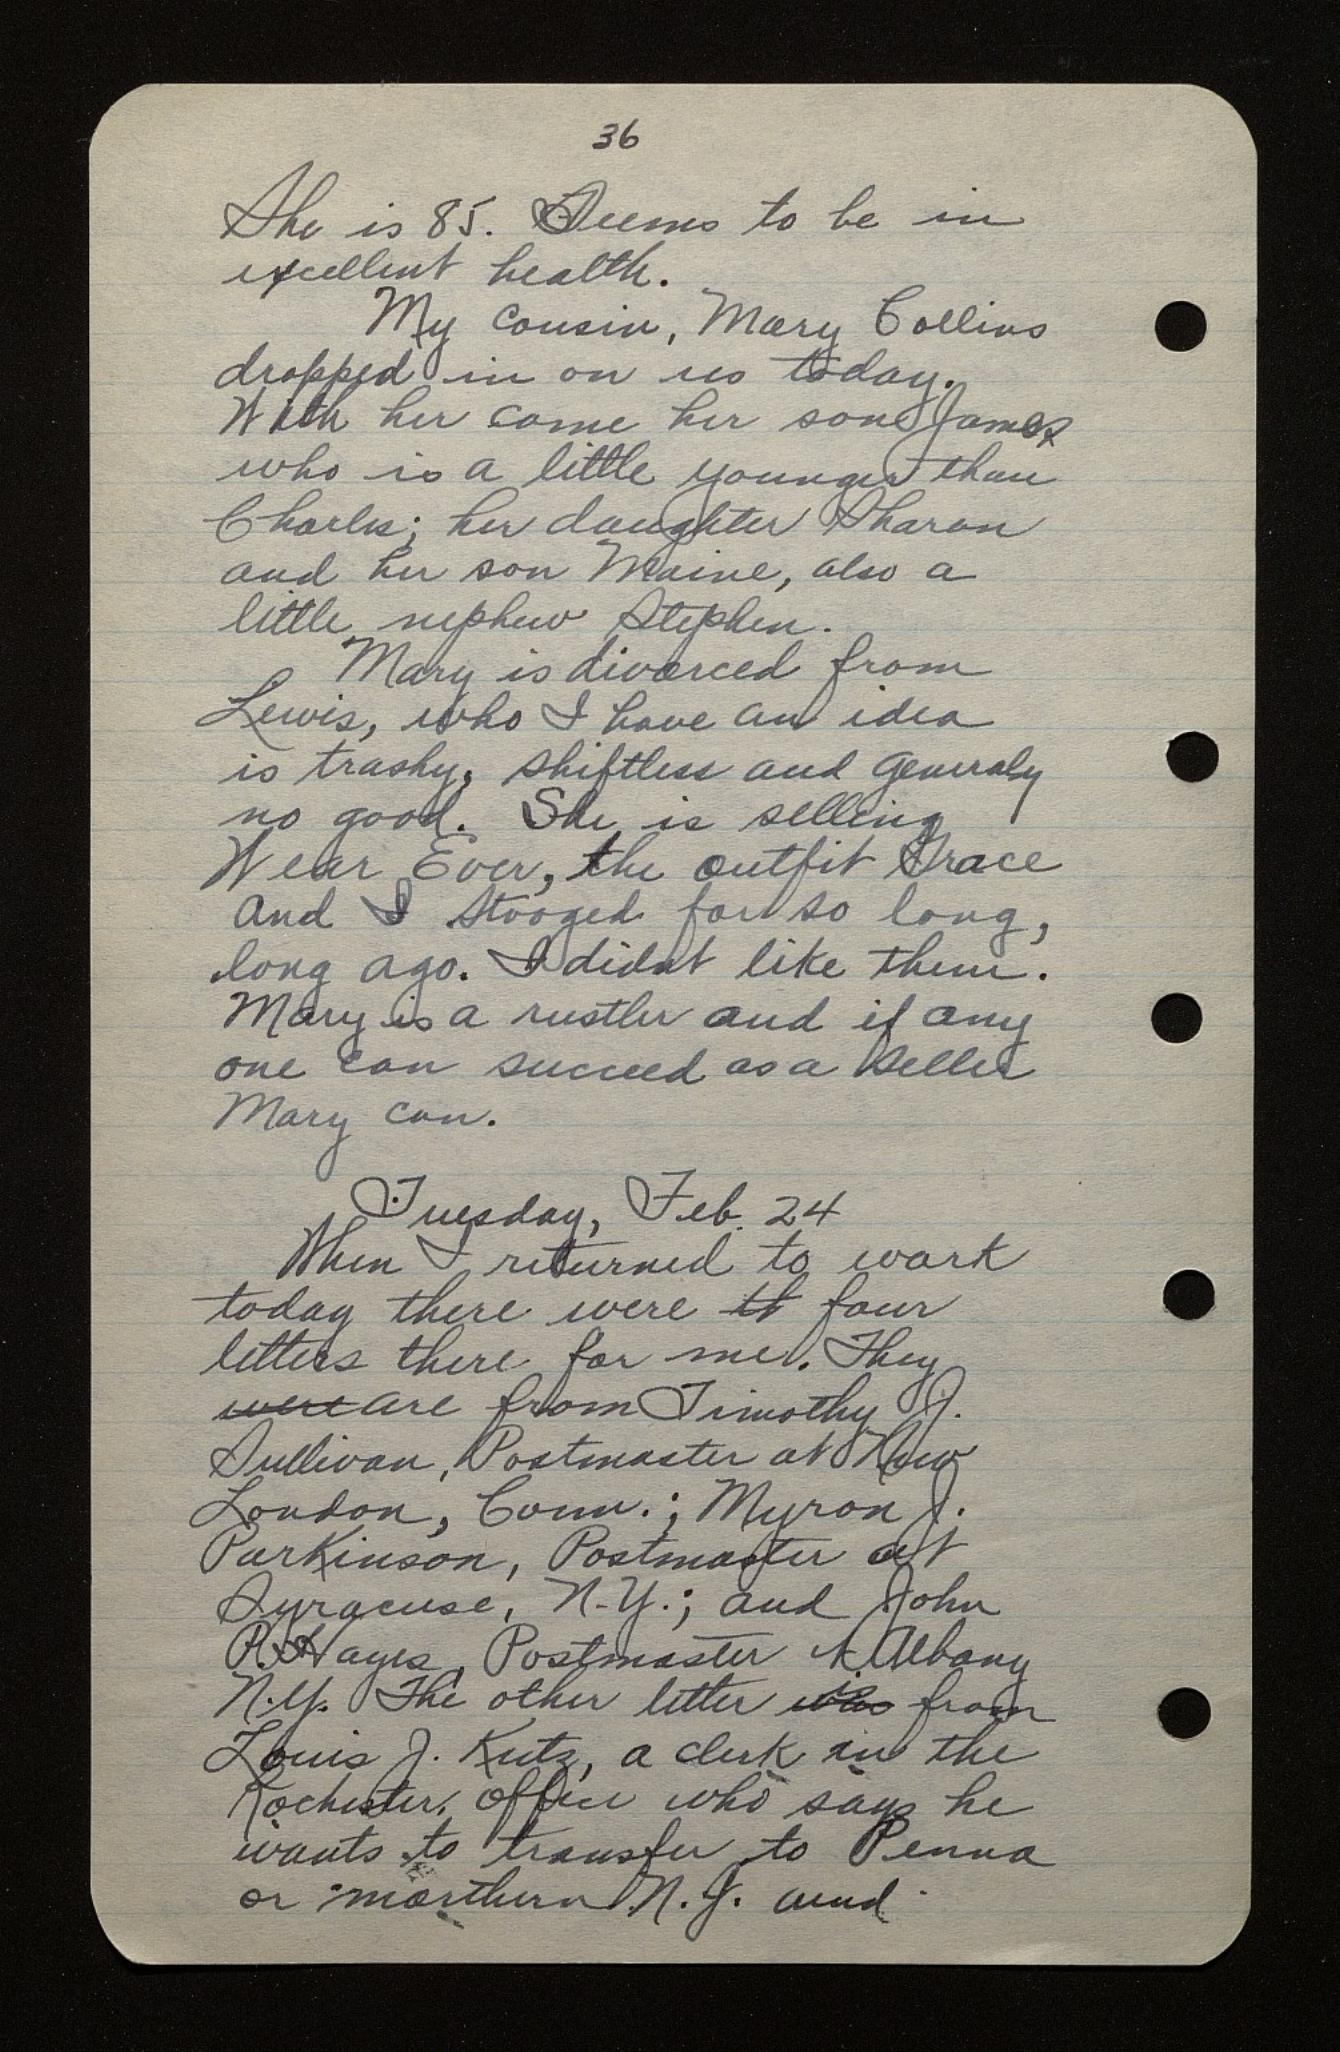 36
She is 85. Seems to be in
excellent health.
My cousin, Mary Collins
dropped in on us today.
With her came her son James
who is a little younger than
Charles; her daughter Sharon
and her son Maine, also a
little nephew Stephen.
Mary is divorced from
Lewis, who I have an idea
is trashy, shiftless and generaly
no good. She is selling
Wear Ever, the outfit Grace
and I stooged for so long,
long ago. I didnt like them.
Mary is a rustler and if any
one can succeed as a seller
Mary can.
Tuesday, Feb. 24
When I returned to work
today there were th four
letters there for me. They
were are from Timothy J.
Sullivan, Postmaster at New
London, Conn.; Myron J.
Parkinson, Postmaster at
Syracuse, N.Y.; and John
P. Hayes, Postmaster Albany
N.Y. The other letter was is from
Louis J. Kutz, a clerk in the
Rochester, office who says he
wants to transfer to Penna
or northern N.J. and